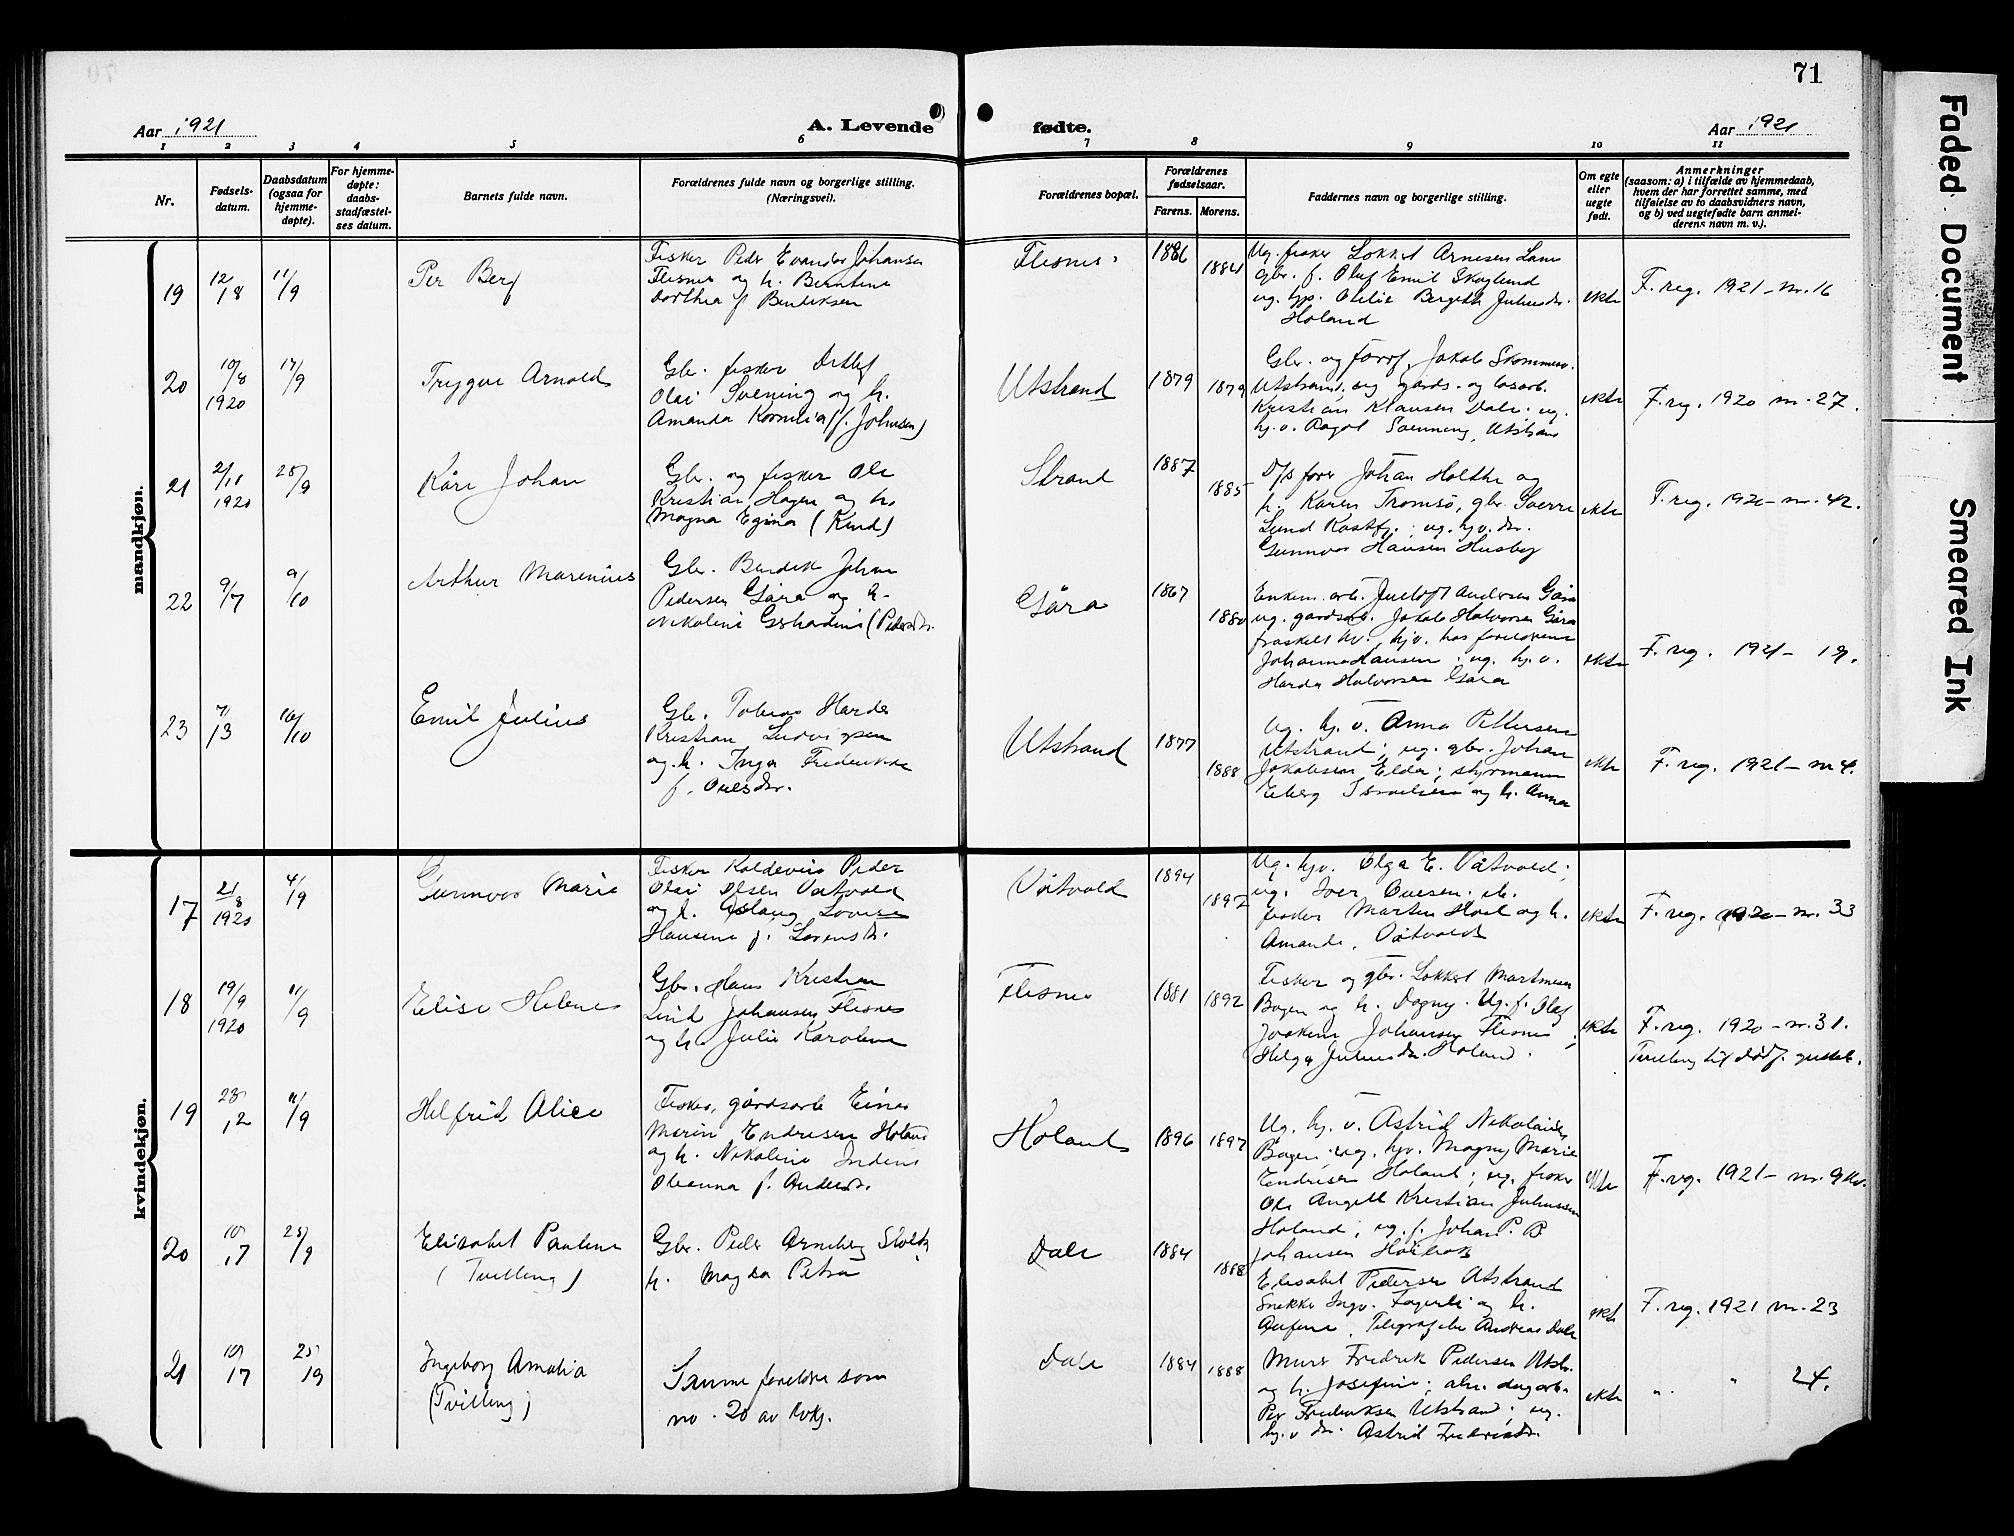 71
Aar 1921
A. Levende
fødte.
Aar 1921
1 2 3 4 5 6 7 8 9 10 11
Nr.
Fødsels-
datum.
Daabsdatum
(ogsaa for
hjemme-
døpte).
For hjemme-
døpte:
daabs-
stadfæstel-
ses datum.
Barnets fulde navn.
Forældrenes fulde navn og borgerlige stilling.
(Næringsvei).
Forældrenes bopæl.
Forældrenes
fødselsaar.
Farens. Morens.
Faddernes navn og borgerlige stilling.
Om egte
eller
uegte
født.
Anmerkninger
(saasom: a) i tilfælde av hjemmedaab,
hvem der har forrettet samme, med
tilføielse av to daabsvidners navn,
og b) ved uegtefødte barn anmel-
derens navn m. v.).
mandkjøn.
19
12/8
11/9
Per Berg
Fisker Peder Evander Johansen
Flesnes og h. Berntine
Dorthea f Bendiksen
Flesnes
1886
1884
Ug. fisker Lokkert Arnesen Lam
gbr. f. Oluf Emil Skoglund
ug. Otelie Bergitte Juliusdr.
Holand
ekte
F. reg. 1921 - nr. 16
20
10/8
1920
17/9
Trygve Arnold
Gbr. fisker Detlef
Olai Svening og h.
Amanda Kornelia (f. Johnsen)
Utstrand
1879
1879
Gbr. og forrf. Jakob
Utstrand, ug gards- og
Kristian Klausen Dale; ug.
hj. v. Ragot Svenning, Utstrand
ekte
F. reg. 1920 nr. 27.
21
2/11
1920
25/9
Kåre Johan
Gbr. og fisker Ole
Kristian Hagen og h.
Magna Egina (Kind)
Strand
1887
1885
D/s fører Johan Holthe og
h. Karen Tromsø, gbr. Sverre
Lund Kastfj.; ug. hjv. dr.
Gunnvor Hansen Husby
ekte
F. reg. 1920 - nr. 42.
22
9/7
9/10
Arthur Marenius
Gbr. Bendik Johan
Pedersen Gåra og h.
Nikoline Gerhardine (Pedersdr.
Gåra
1867
1880
Enkem. arb. Andersen Gåra
ug. gardsarb. Jakob Halvorsen Gåra
fraskilt hv. hjv. hos foreldrene
Johanna Hansen; ug. hj. v.
Harda Halvorsen Gåra
ekte
F. reg. 1921 - 19.
23
7/3
16/10
Emil Julius
Gbr. Tobias Harder
Kristian Ludvigsen
og h. Inga Fredrikke
f. Olesdr.
Utstrand
1877
1888
Ug. hj. v. Anna Pettersen
Utstrand; ug. gbr. Johan
Jakobsen Elde; styrmann
Eberg Israelsen og h. Anna
ekte
F. reg. 1921 - nr 4.
kvindekjøn.
17
21/8
1920
4/9
Gunnvor Marie
Fisker Koldevin Peder
Olai Olsen Vatvold
og h. Aslaug Lovise
Hansine f. Lorensdr.
Våtvold
1894
1892
Ug. hjv. Olga E. Våtvold;
ug. Iver Ovesen; ds.
fisker Martin Hoel og h.
Amanda, Våtvold
ekte
F. reg. 1920 - nr. 33
18
19/9
1920
11/9
Elise Helene
Gbr. Hans Kristian
Lind Johansen Flesnes
og h. Julie Karoline
Flesnes
1881
1892
Fisker og gbr. Lokkert Martinsen
Bogen og h. Dagny. Ug. f. Olaf
Joakim Johansen Flesnes;
Helga Juliusdr. Holand.
ekte
F. reg. 1920 - nr. 31.
Tvilling til dødf. gutteb.
19
23/12
11/9
Helfrid Alice
Fisker, gårdsarb Einar
Marin Endresen Holand
og h. Nikoline Indine
Oleanna f. Andersdr.
Holand
1896
1897
Ug. hj. v. Astrid Nikolaisen
Bogen; ug. hjv. Magny Marie
Endresen Holand; ug. fisker
Ole Angell Kristian Juliussen
Holand; ug. f. Johan P. B
Johansen
ekte
F. reg. 1921 - nr. 9
20
10/17
25/9
Elisabet Pauline
(Tvilling)
Gbr. Peder Arneberg
h. Magda Petra
Dale
1884
1888
Elisabet Pedersen Utstrand
Snekker Ingv. Fagerli og h.
Telegrafarb Andreas Dale
ekte
F. reg. 1921 nr. 23
21
10/17
25/9
Ingeborg Amalia
(Tvilling)
Samme foreldre som
no. 20 av kvkj.
Dale
1884
1888
Murer Fredrik Pedersen Utstr.
og h. Josefine; dagarb.
Per Fredriksen Utstrand; ug.
hj. v dr. Astrid Fredriksdr.
ekte
" " 24.
Faded Document
Smeared Ink